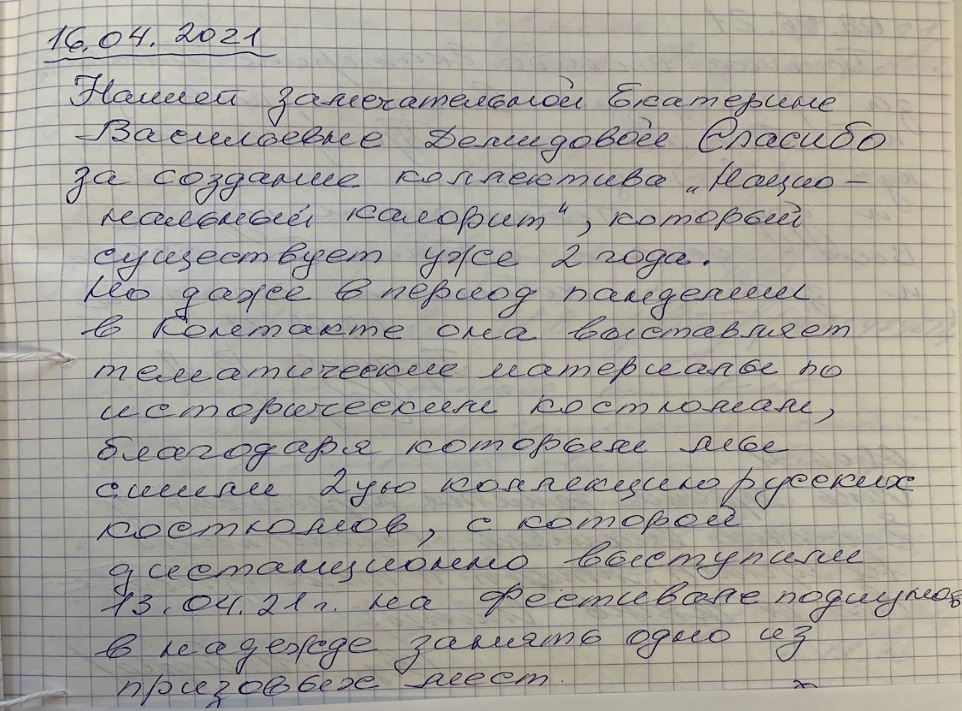 16.04.2021
Нашей замечательной Екатерине
Васильевне Демидовой Спасибо
за создание коллектива „Нацио-
нальный калорит“, который
существует уже 2 года.
Но даже в период пандемии
в Контакте она выставляет
тематические материалы по
историческим костюмам,
благодаря которым мы
сшили 2ую коллекцию русских
костюмов, с которой
дистанционно выступили
13.04.21г. на Фестивале подиумов
в надежде занять одно из
призовых мест.